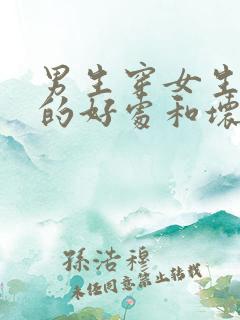 男生穿女生
的好处和坏
孫浩穆
未经同意禁止转载